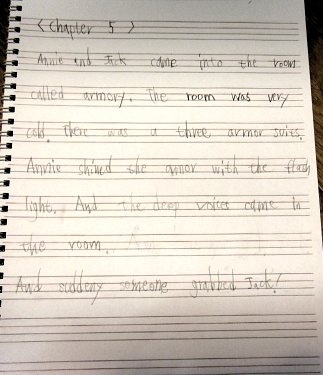 < Chapter 5 >
Annie and Jack came into the room
called armory. The room was very
cold. There was a three armor suits.
Annie shined the armor with the flash
light. And the deep voices came in
the room.
And suddeny someone grabbed Jack!